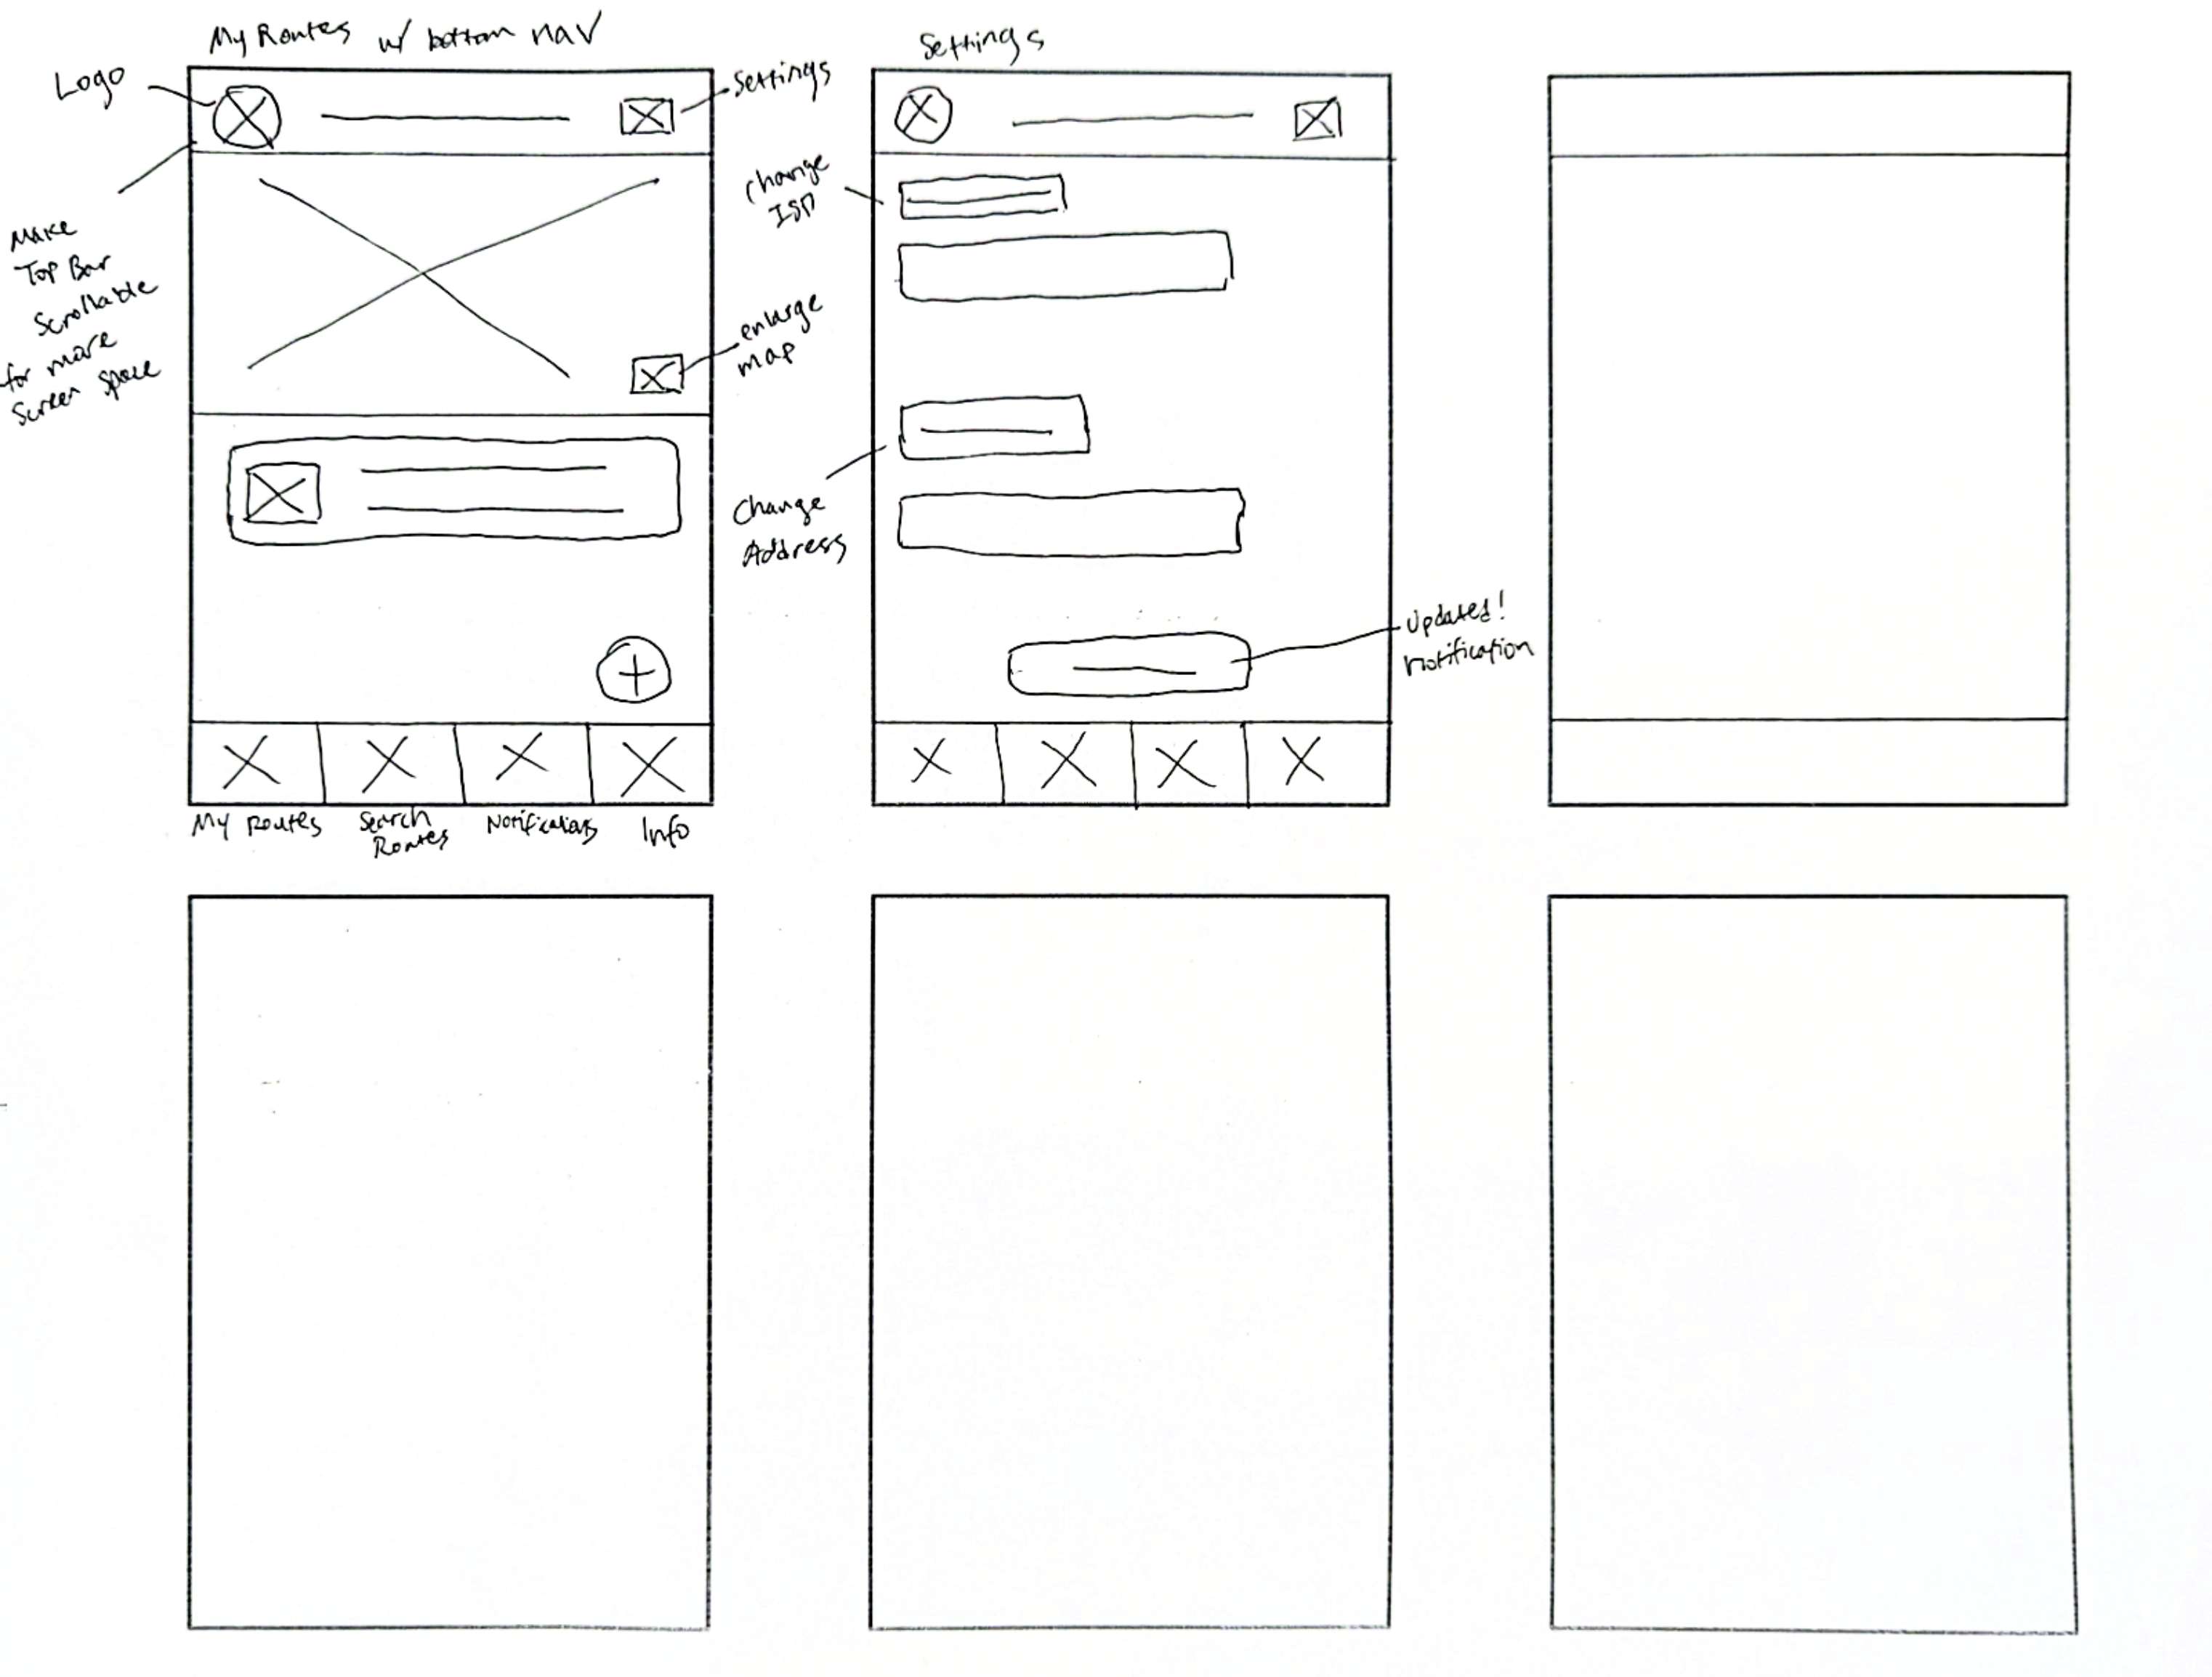 My Routes w/ bottom nav
Logo
Settings
Make
Top Bar
Scrollable
for more
Screen space
enlarge
map
My Routes
Search
Routes
Notifications
Info
Settings
Change
ISD
Change
Address
Updated!
notification